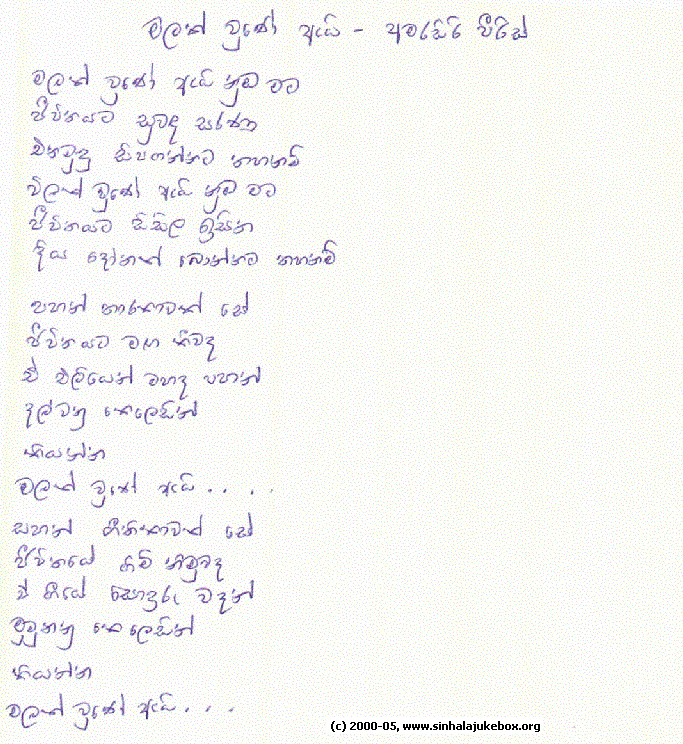 මලක් වුණේ ඇයි - අමරසිරි පීරිස්
මලක් වුණේ ඇයි නුඹ මට
ජීවිතයට සුවඳ සරණ
එනමුදු සිපගන්නට තහනම්
විලක් වුණේ ඇයි නුඹ මට
ජීවිතයට සිසිල ඉසින
දිය දෝතක් බොන්නට තහනම්
පහන් තාරකාවක් සේ
ජීවිතයට මඟ කීවද
ඒ එළියෙන් මහද පහන්
දල්වනු කෙලෙසින්
කියන්න
මලක් වුණේ ඇයි. . . .
සහන් ගීතිකාවක් සේ
ජීවිතයේ හිමි නුමුවද
ඒ ගීයේ සොඳුරු වදන්
මුමුනනු කෙලෙසින්
කියන්න
මලක් වුණේ ඇයි. . .
(c) 2000-05, www.sinhalajukebox.org